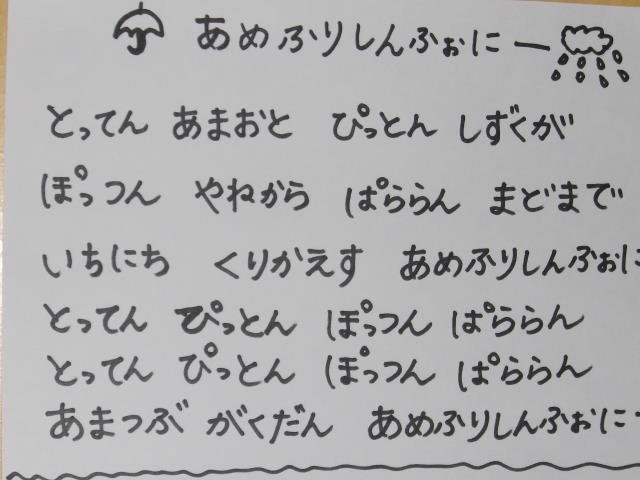 あめふりしんふぉにー
とってん あまおと ぴっとん しずくが
ぽっつん やねから ぱららん まどまで
いちにち くりかえす あめふりしんふぉに
とってん ぴっとん ぽっつん ぱららん
とってん ぴっとん ぽっつん ぱららん
あまつぶ がくだん あめふりしんふぉにー